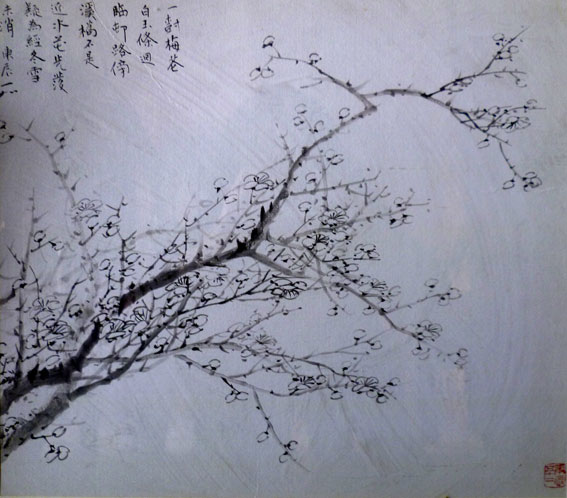 一樹梅花
白玉條迥
臨邨路傍
溪橋不是
近水花先發
疑為經冬雪
未消 庚辰